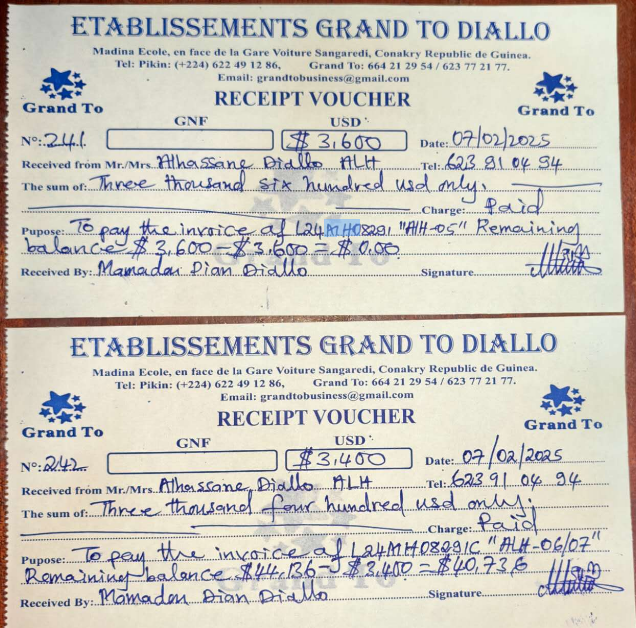 ETABLISSEMENTS GRAND TO DIALLO
Madina Ecole, en face de la Gare Voiture Sangaredi, Conakry Republic de Guinea.
Tel: Pikin: (+224) 622 49 12 86, Grand To: 664 21 29 54 / 623 77 21 77.
Email: grandtobusiness@gmail.com
Grand To RECEIPT VOUCHER Grand To
GNF USD
Nº: 241 $ 3,600 Date: 07/02/2025
Received from Mr./Mrs. Alhassane Diallo ALH Tel: 623 91 04 94
The sum of: Three thousand six hundred usd only.
Charge: Paid
Pupose: To pay the invoice of L24MH08291 "AH-05" Remaining
balance $ 3,600 - $3,600 = $0.00
Grand To
Received By: Mamadou Dian Diallo Signature
ETABLISSEMENTS GRAND TO DIALLO
Madina Ecole, en face de la Gare Voiture Sangaredi, Conakry Republic de Guinea.
Tel: Pikin: (+224) 622 49 12 86, Grand To: 664 21 29 54 / 623 77 21 77.
Email: grandtobusiness@gmail.com
Grand To RECEIPT VOUCHER Grand To
GNF USD
Nº: 242 $3,400 Date: 07/02/2025
Received from Mr./Mrs. Alhassane Diallo ALH Tel: 623 91 04 94
The sum of: Three thousand four hundred usd only.
Charge: Paid
Pupose: To pay the invoice of L24MH08291C "ALH-06/07"
Remaining balance $44,136 - $3,400 = $40,736
Received By: Mamadou Dian Diallo Signature